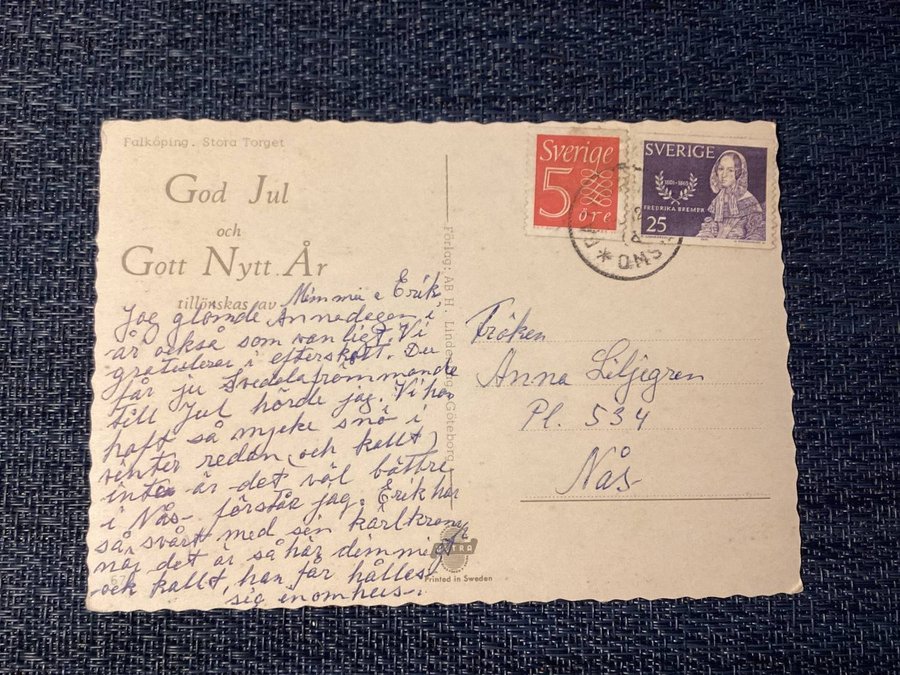 Falköping. Stora Torget
God Jul
och
Gott Nytt År
tillönskas av Mimmi o Erik
Jag glömde Annadagen i
år också som vanligt. Vi
gratulerar i efterskott. Du
får ju Svedalafrömmande
till Jul hörde jag. Vi har
haft så mycke snö i
vinter redan (och kallt)
inte är det väl bättre
i Nås förstår jag. Erik har
så svårt med sin kärlkramp
när det är så här dimmigt
och kallt, han får hålles
sig inomhus.
Förlag: AB H. Göteborg
Printed in Sweden
Sverige
5
öre
SVERIGE
1801-1865
FREDRIKA BREMER
25
Fröken
Anna Liljegren
Pl. 534
Nås